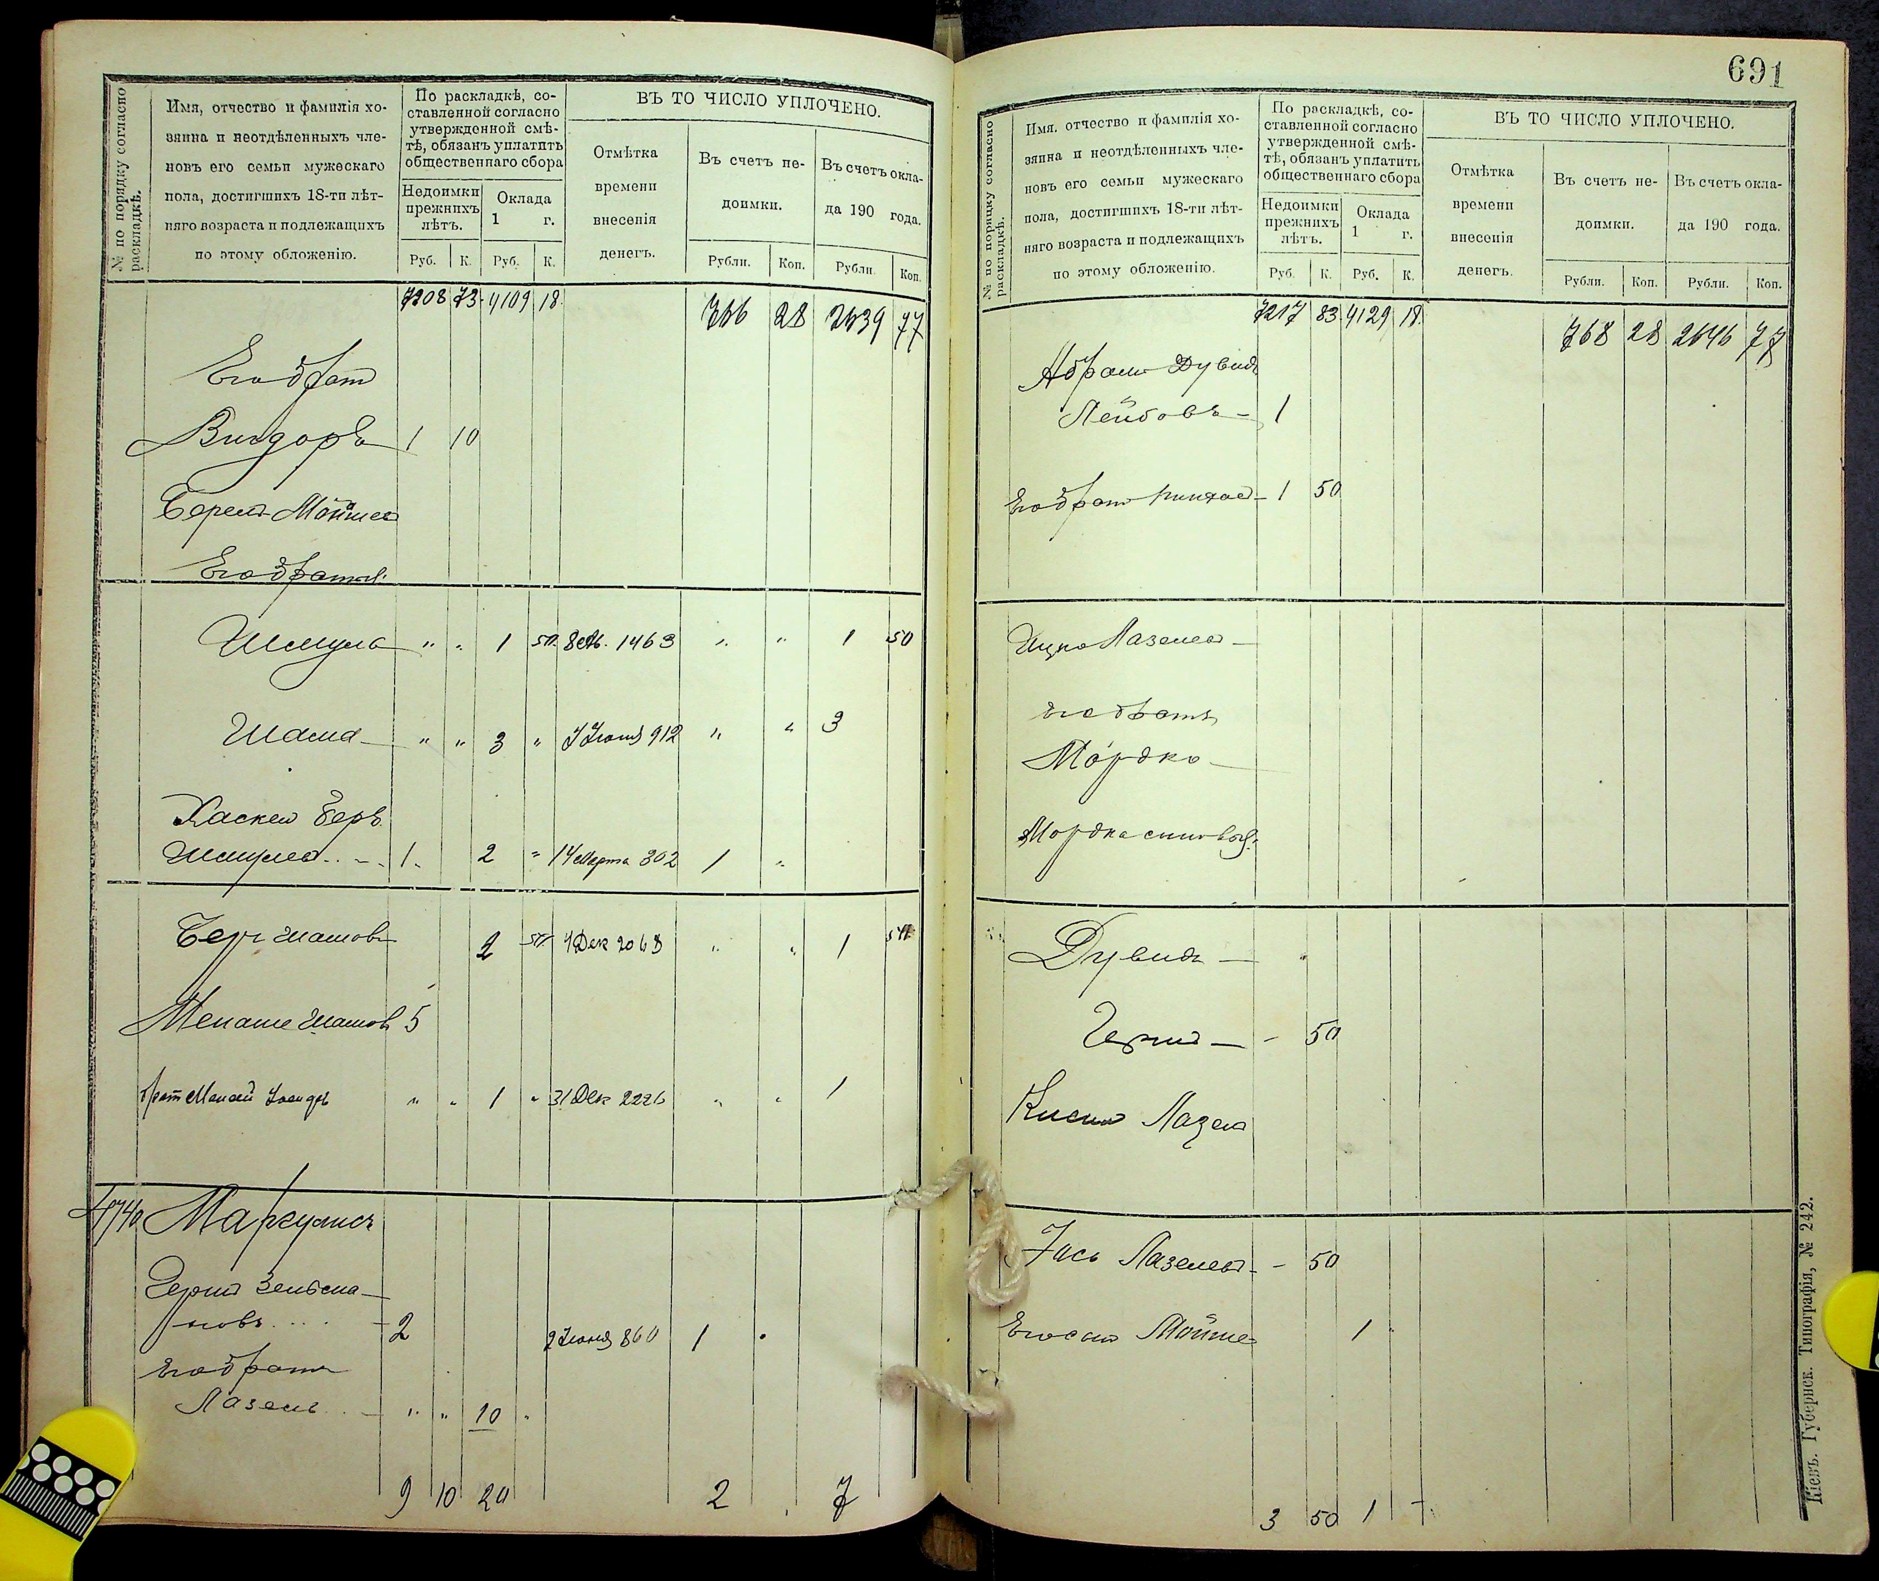 № по порядку согласно раскладкѣ.
Имя, отчество и фамилія хо-
зяина и неотдѣленныхъ чле-
новъ его семьи мужескаго
пола, достигшихъ 18-ти лѣт-
няго возраста и подлежащихъ
по этому обложенію.
По раскладкѣ, со-
ставленной согласно
утвержденной смѣ-
тѣ, обязанъ уплатить
общественнаго сбора
Недоимки
прежнихъ
лѣтъ.
Оклада
1 г.
Руб. К. Руб. К.
ВЪ ТО ЧИСЛО УПЛОЧЕНО.
Отмѣтка
времени
внесенія
денегъ.
Въ счетъ не-
доимки.
Въ счетъ окла-
да 190 года.
Рубли. Коп. Рубли Коп.
7208 73 4109 18 766 28 2639 77
Его братъ
Вигдоръ 1 10
Берель Мойшев
Его братья:
Шмуль " " 1 50 1463 " " 1 50
Шама " " 3 " 7 Іюня 912 " " 3
Хаскель Беръ
Шмулев 1 2 " 14 Марта 302 1 "
Беръ Шамовъ 2 50 4 Дек 2063 " " 1 50
Менаше Шамов 5
братъ " " 1 " 31 Дек " " 1
4740 Маркулисъ
Гершъ Зельма-
новъ 2 2 Іюня 860 1
Его братъ
Лазель " " 10 "
9 10 20 2 7
691
№ по порядку согласно раскладкѣ.
Имя, отчество и фамилія хо-
зяина и неотдѣленныхъ чле-
новъ его семьи мужескаго
пола, достигшихъ 18-ти лѣт-
няго возраста и подлежащихъ
по этому обложенію.
По раскладкѣ, со-
ставленной согласно
утвержденной смѣ-
тѣ, обязанъ уплатить
общественнаго сбора
Недоимки
прежнихъ
лѣтъ.
Оклада
1 г.
Руб. К. Руб. К.
ВЪ ТО ЧИСЛО УПЛОЧЕНО.
Отмѣтка
времени
внесенія
денегъ.
Въ счетъ не-
доимки.
Въ счетъ окла-
да 190 года.
Рубли. Коп. Рубли. Коп.
7217 83 4129 18 768 28 2646 77
Абрамъ Дувидъ
Лейбовъ 1
Его братъ Пинхас 1 50
Ицко Лазелев
Его братъ
Мордко
Мордка сыновья:
Дувидъ
Гершъ - 50
Кисиль Лазел
Іось Лазелев - 50
Его сынъ Мойше 1
3 50 1 -
Кіевъ. Губернск. Типографія, № 242.